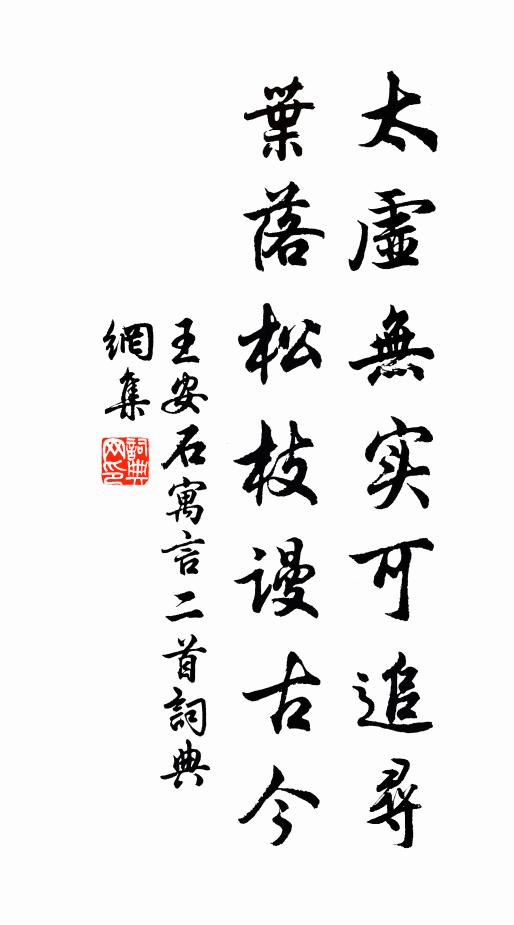 太虛無实可追尋
葉落松枝謾古今
王安石寓言二首詞典
網集
詞典
网印